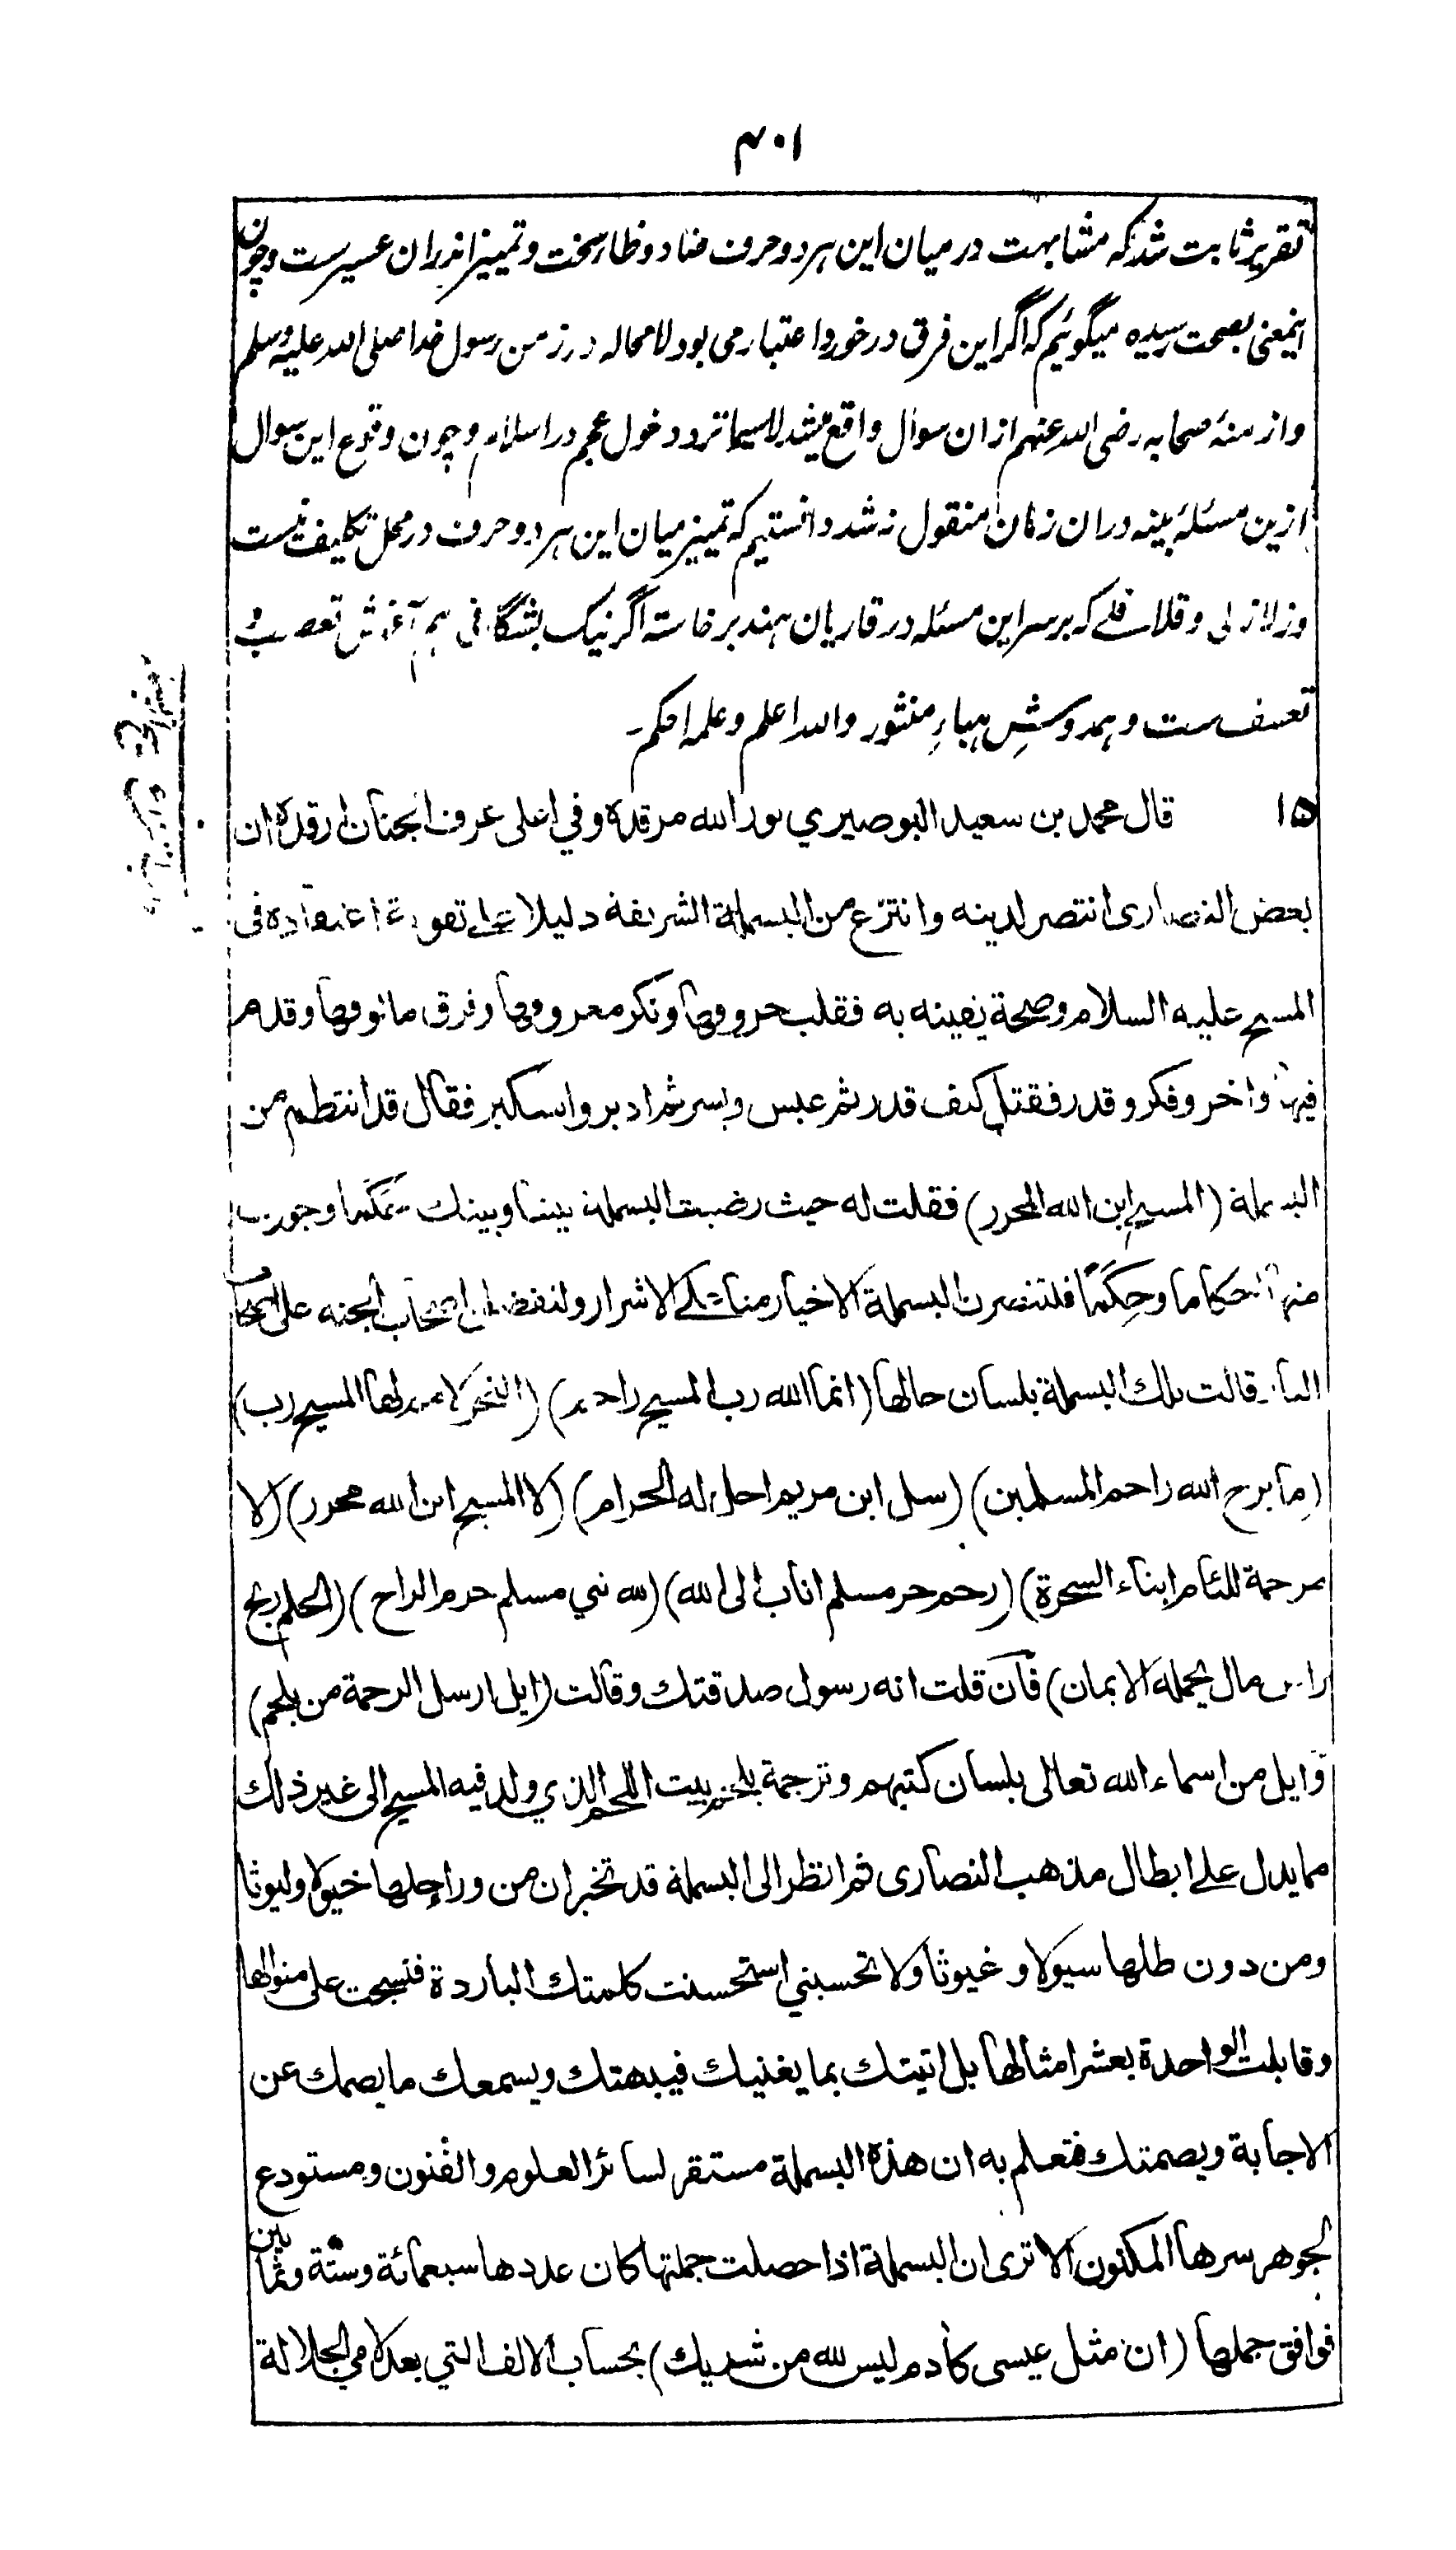 ۴۰۱
تقریر ثابت شد که مشابهت درمیان این هردو حرف ضاد و ظا سخت و تمییز اندران عسیرست وچون
اینمعنی بصحت رسیده میگوئیم که اگر این فرق درخور اعتبار می بود لا محاله در زمن رسول خدا صلی الله علیه وسلم
و ازمنهٔ صحابه رضی الله عنهم ازان سوال واقع میشد لاسیما نزد دخول عجم در اسلام و چون وقوع این سوال
ازین مسئله بینه دران زمان منقول نه شد دانستیم که تمییز میان این هردو حرف در محل تکلیف نیست
و زلازلی و قلاقلے که بر سر این مسئله در قاریان هند برخاسته اگر نیک بشگافی هم آغوش تعصب و
تعسف ست و همدوشِ هباءِ منثور والله اعلم وعلمه احکم۔
۱۵ قال محمد بن سعید البوصیری نور الله مرقده وفی اعلی غرف الجنان ارقده ان
بعض النصاری انتصر لدینه وانتزع من البسملة الشریفة دلیلا علے تقویة اعتقاده فی
المسیح علیه السلام وصحة یقینه به فقلب حروفها ونکر معروفها وفرق مالوفها وقدم
فیها واخر وفکر وقدر فقتل کیف قدر ثم عبس وبسر ثم ادبر واستکبر فقال قد انتظم من
البسملة (المسیح ابن الله المحرر) فقلت له حیث رضیت البسملة بیننا وبینک حَکَما وجوزت
منها احکاما وحِکَمًا فلتنصرن البسملة الاخیار منا علے الاشرار ولنفضلن اصحاب الجنة علی اصحاب
النار قالت لك البسملة بلسان حالها (انما الله رب المسیح راحم) (النحر لامم لها المسیح رب)
(ما برح الله راحم المسلمین) (سل ابن مریم احل له الحرام) (لا المسیح ابن الله محرر) (لا
مرحمة للئام ابناء السحرة) (رحم حر مسلم اناب الی الله) (لله نبی مسلم حرم الراح) (الحلم ربح
راس مال یحمله الایمان) فان قلت انه رسول صدقتك وقالت (ایل ارسل الرحمة من بلحم)
وایل من اسماء الله تعالی بلسان کتبهم وترجمة بلحم بیت اللحم الذی ولد فیه المسیح الی غیر ذلك
مما یدل علے ابطال مذهب النصاری ثم انظر الی البسملة قد تخبر ان من وراء حلها خیولا ولیوثا
ومن دون طلها سیولا وغیوثا ولا تحسبنی استحسنت کلمتك الباردة فنسجت علی منوالها
وقابلت الواحدة بعشر امثالها بل اتیتك بما یغنیك فیبهتك ویسمعك ما یصمك عن
الاجابة ویصمتك فتعلم به ان هذه البسملة مستقر لسائر العلوم والفنون ومستودع
لجوهر سرها المکنون الا تری ان البسملة اذا حصلت جملتها کان عددها سبعمائة وستة وثمانین
فوافق جملها (ان مثل عیسی کادم لیس لله من شریك) بحساب الالف التی بعد لامی الجلالة